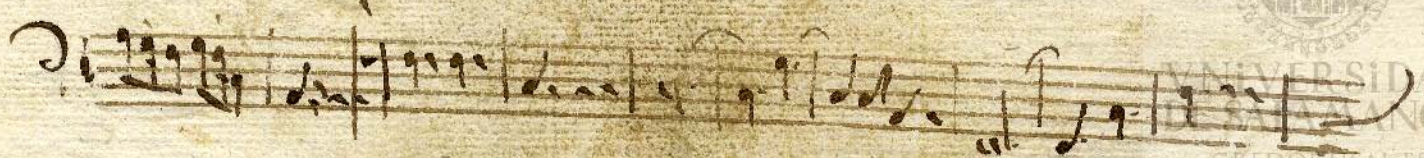 VNiVERSiD
DE SALAMAN